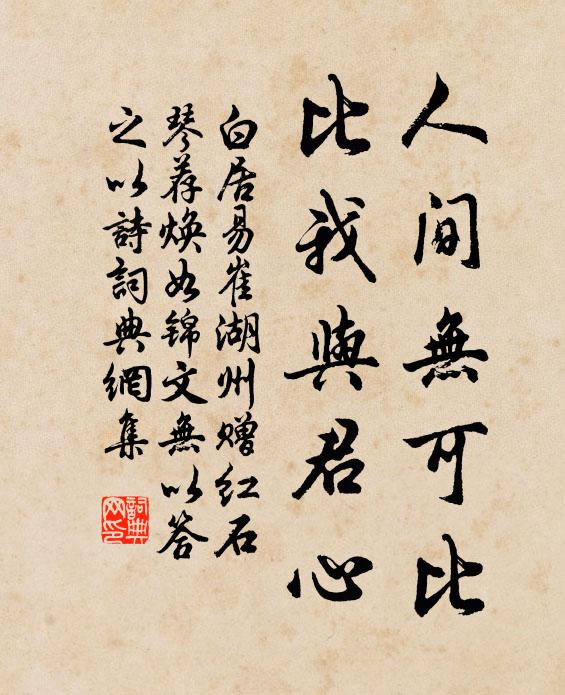 人間無可比
比我與君心
白居易崔湖州赠红石
琴荐焕如锦文無以答
之以詩詞典網集
詞典網印